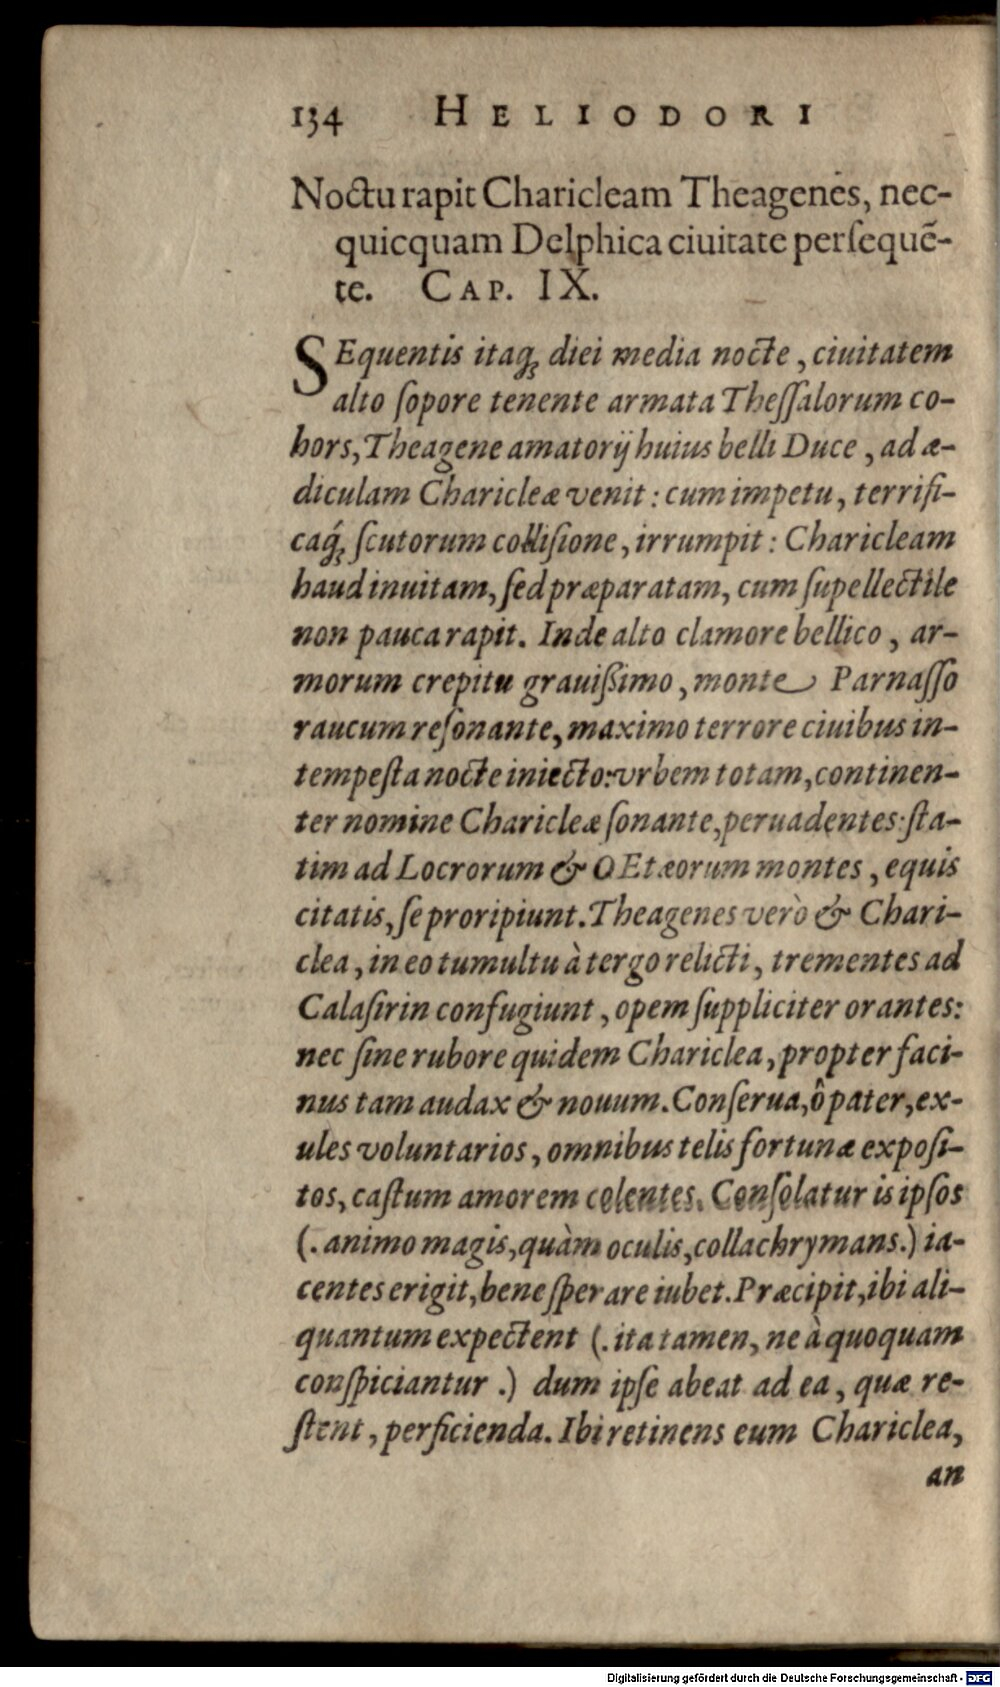 134 HELIODORI
Noctu rapit Charicleam Theagenes, nec-
quicquam Delphica ciuitate persequẽ-
te. CAP. IX.
SEquentis itaq; diei media nocte, ciuitatem
alto sopore tenente armata Thessalorum co-
hors, Theagene amatorij huius belli Duce, ad æ-
diculam Charicleæ venit: cum impetu, terrifi-
caq́; scutorum collisione, irrumpit: Charicleam
haud inuitam, sed præparatam, cum supellectile
non pauca rapit. Inde alto clamore bellico, ar-
morum crepitu grauißimo, monte Parnasso
raucum resonante, maximo terrore ciuibus in-
tempesta nocte iniecto: vrbem totam, continen-
ter nomine Charicleæ sonante, peruadentes: sta-
tim ad Locrorum & OEtæorum montes, equis
citatis, se proripiunt. Theagenes verò & Chari-
clea, in eo tumultu à tergo relicti, trementes ad
Calasirin confugiunt, opem suppliciter orantes:
nec sine rubore quidem Chariclea, propter faci-
nus tam audax & nouum. Conserua, ô pater, ex-
ules voluntarios, omnibus telis fortunæ exposi-
tos, castum amorem colentes. Consolatur is ipsos
(. animo magis, quàm oculis, collachrymans.) ia-
centes erigit, bene sperare iubet. Præcipit, ibi ali-
quantum expectent (. ita tamen, ne à quoquam
conspiciantur.) dum ipse abeat ad ea, quæ re-
stent, perficienda. Ibi retinens eum Chariclea,
an
Digitalisierung gefördert durch die Deutsche Forschungsgemeinschaft - DFG